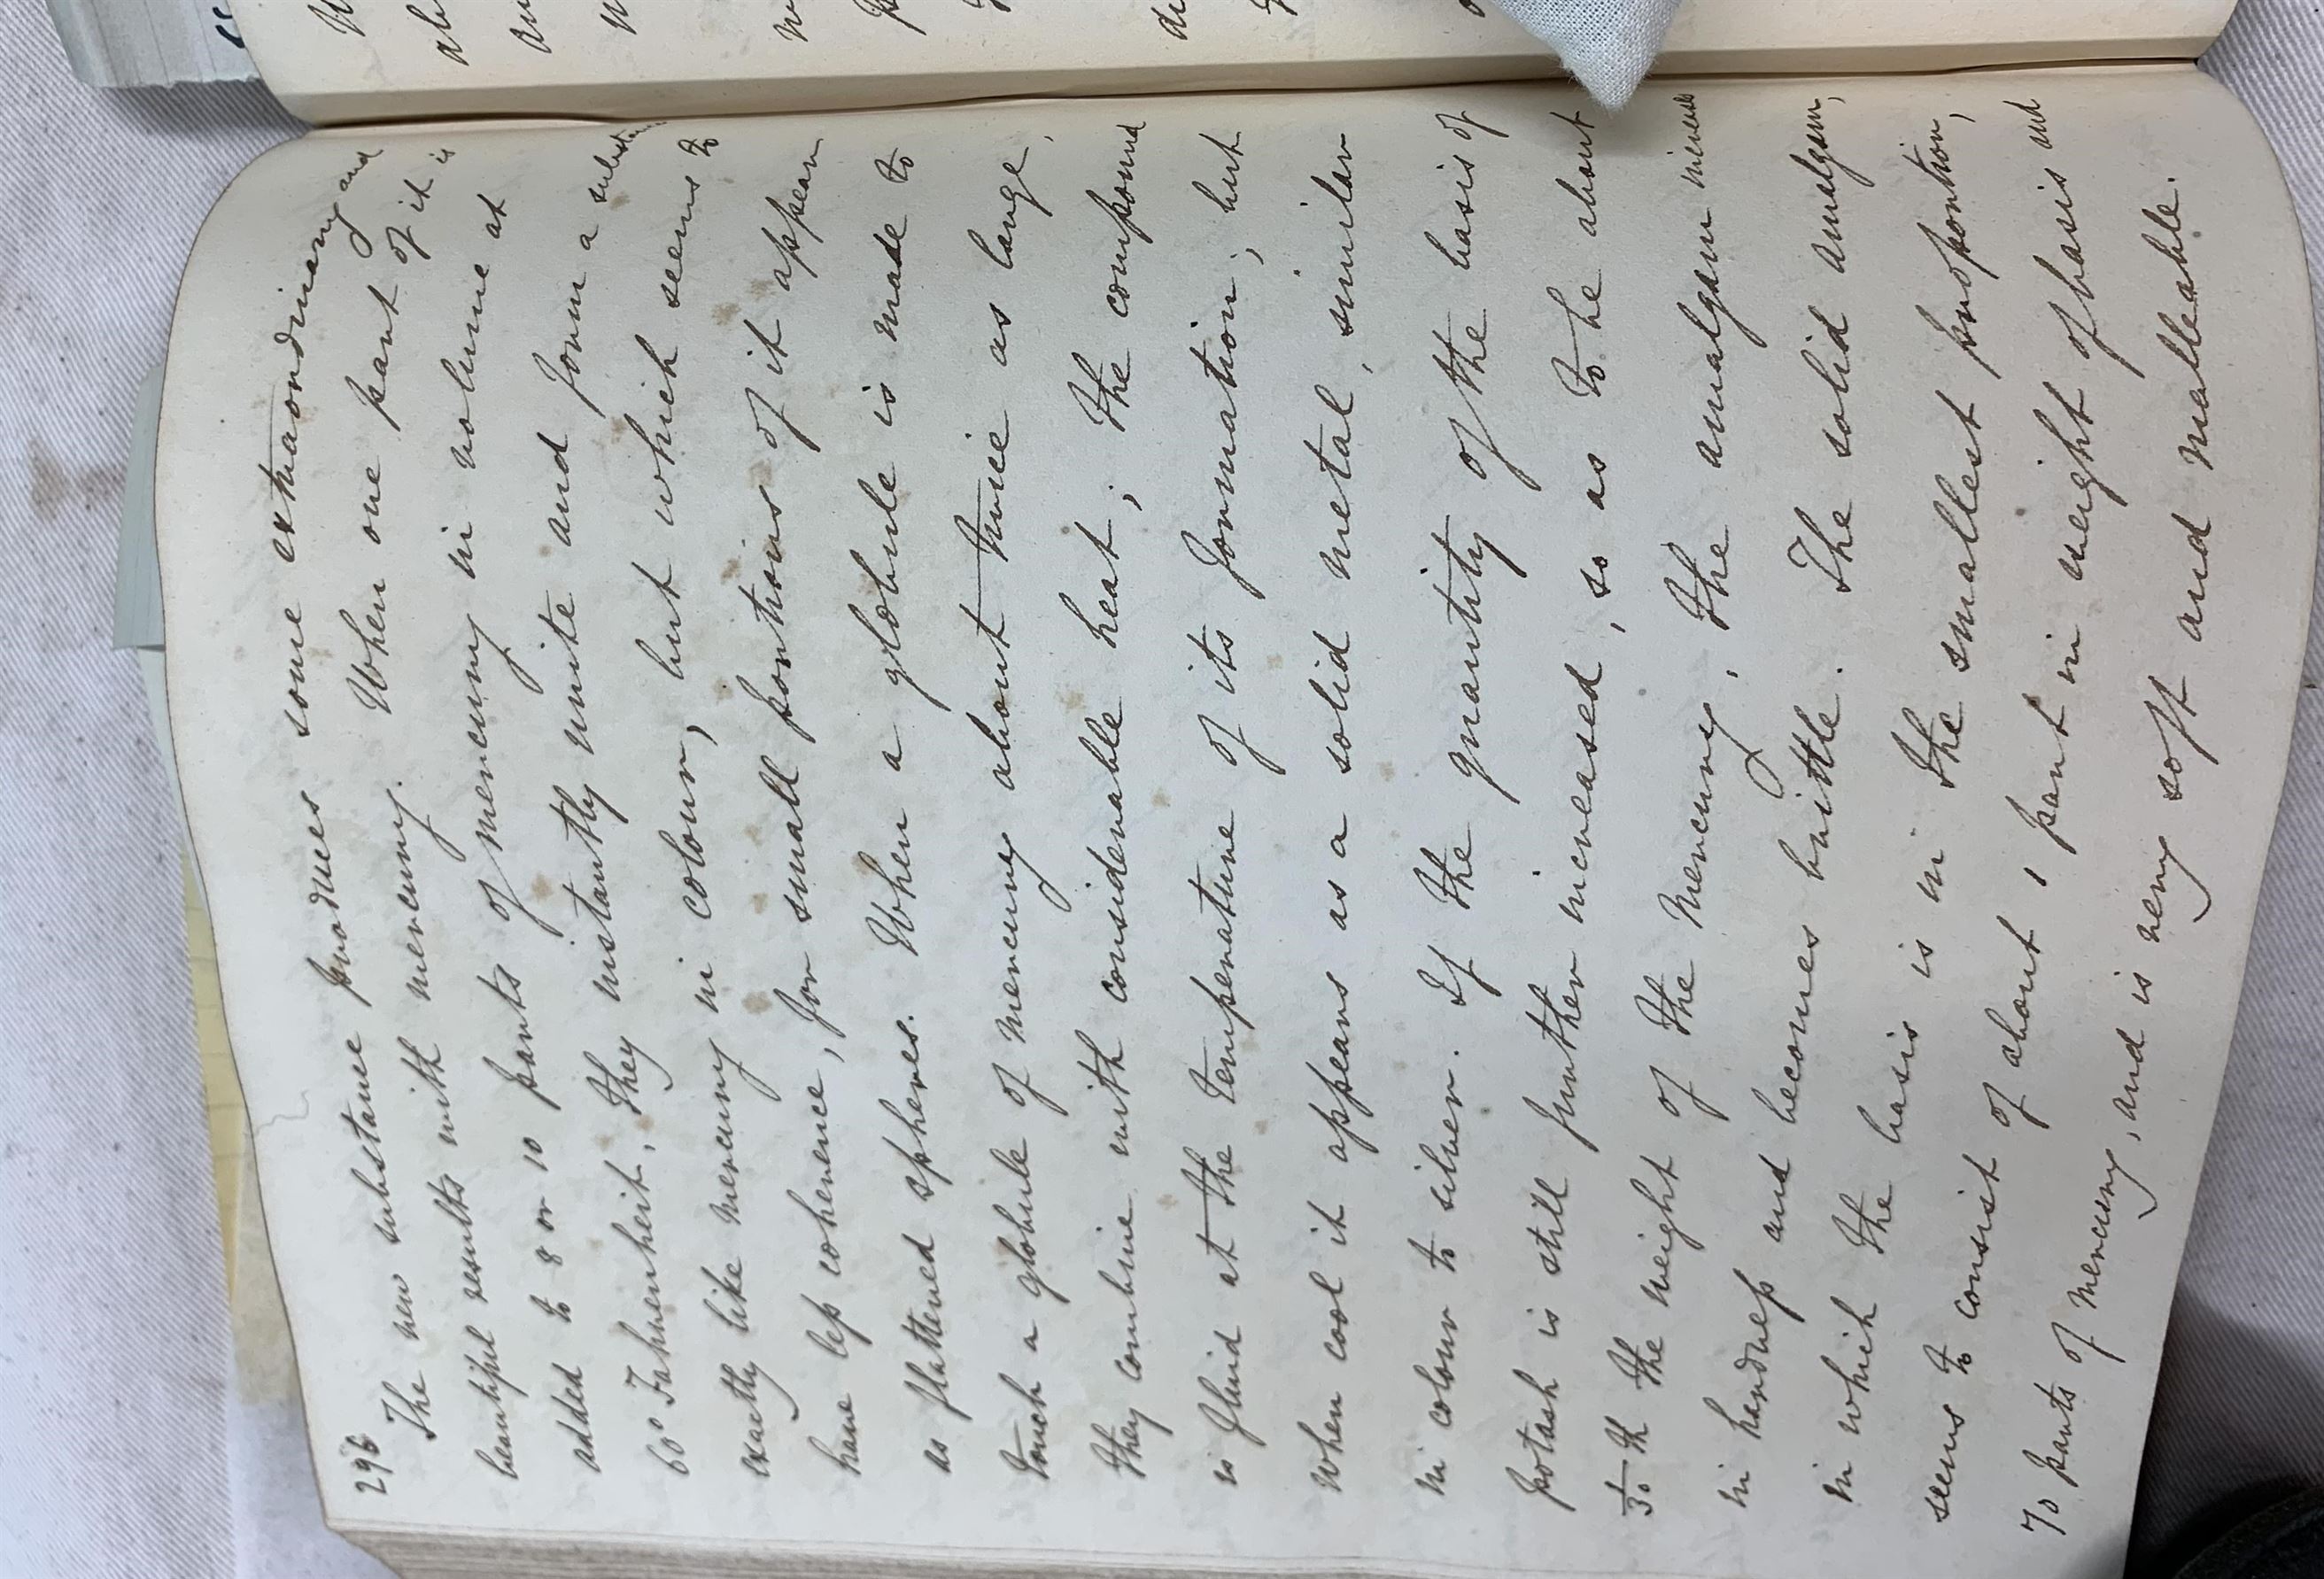 296
The new substance produces some extraordinary and
beautiful results with mercury. When one part of it is
added to 8 or 10 parts of mercury in volume at
60° Fahrenheit, they instantly unite and form a substance
exactly like mercury in colour, but which seems to
have less coherence, for small portions of it appear
as flattened spheres. When a globule is made to
touch a globule of mercury about twice as large,
they combine with considerable heat; the compound
is fluid at the temperature of its formation; but
when cool it appears as a solid metal, similar
in colour to silver. If the quantity of the basis of
potash is still further increased, so as to be about
1/30 th the weight of the mercury, the amalgam increases
in hardness and becomes brittle. The solid amalgam,
in which the basis is in the smallest proportion,
seems to consist of about 1 part in weight of basis and
70 parts of mercury, and is very soft and malleable.